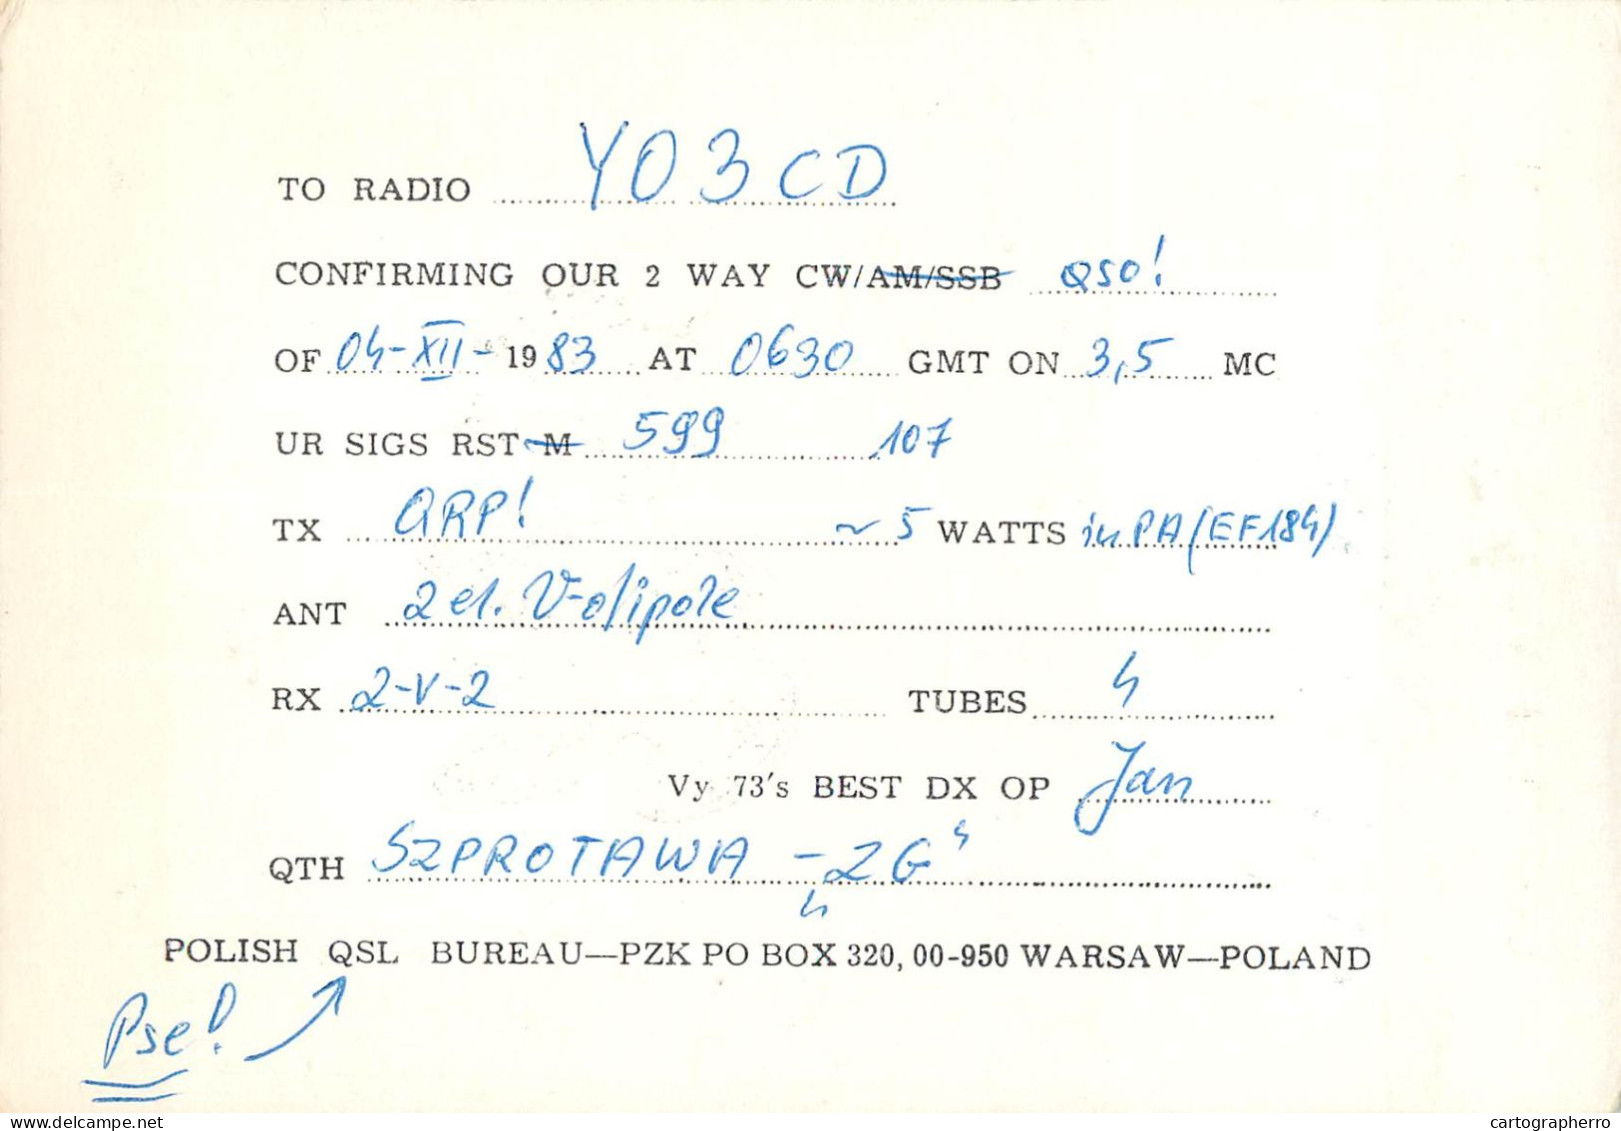 TO RADIO YO3CD
CONFIRMING OUR 2 WAY CW/AM/SSB QSO!
OF 04-XII-1983 AT 0630 GMT ON 3,5 MC
UR SIGS RST-M 599 107
TX QRP! ~5 WATTS in PA (EF184)
ANT 2 el. V-dipole
RX 2-V-2 TUBES 4
Vy 73's BEST DX OP Jan
QTH SZPROTAWA - "ZG"
POLISH QSL BUREAU—PZK PO BOX 320, 00-950 WARSAW—POLAND
Pse!
delcampe.net
cartographerro